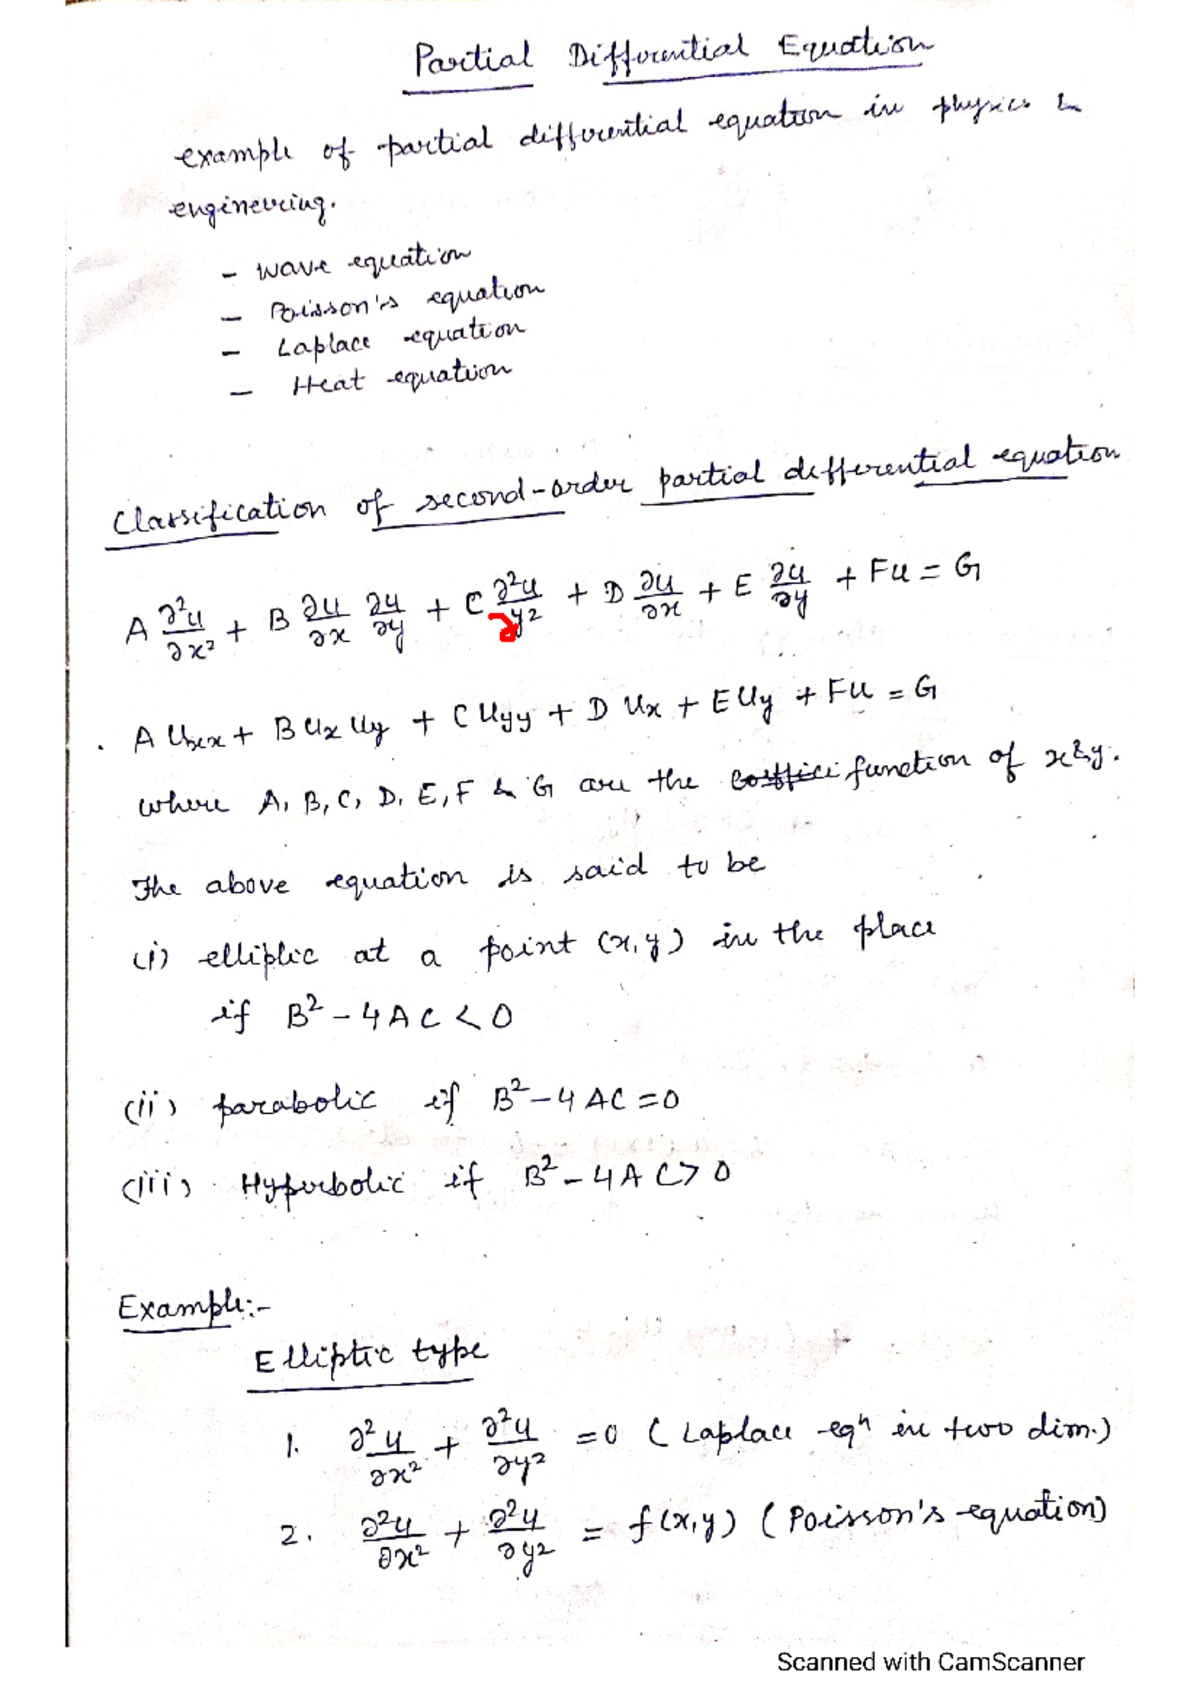 Partial Differential Equation
example of partial differential equation in physics &
engineering.
- wave equation
- Poisson's equation
- Laplace equation
- Heat equation
Classification of second-order partial differential equation
A ∂²u/∂x² + B ∂u/∂x ∂u/∂y + C ∂²u/∂y² + D ∂u/∂x + E ∂u/∂y + Fu = G
A Uxx + B Ux Uy + C Uyy + D Ux + E Uy + Fu = G
where A, B, C, D, E, F & G are the function of x & y.
The above equation is said to be
(i) elliptic at a point (x, y) in the place
if B² - 4AC < 0
(ii) parabolic if B² - 4AC = 0
(iii) Hyperbolic if B² - 4AC > 0
Example:-
Elliptic type
1. ∂²u/∂x² + ∂²u/∂y² = 0 ( Laplace eqn in two dim.)
2. ∂²u/∂x² + ∂²u/∂y² = f(x,y) ( Poisson's equation)
Scanned with CamScanner